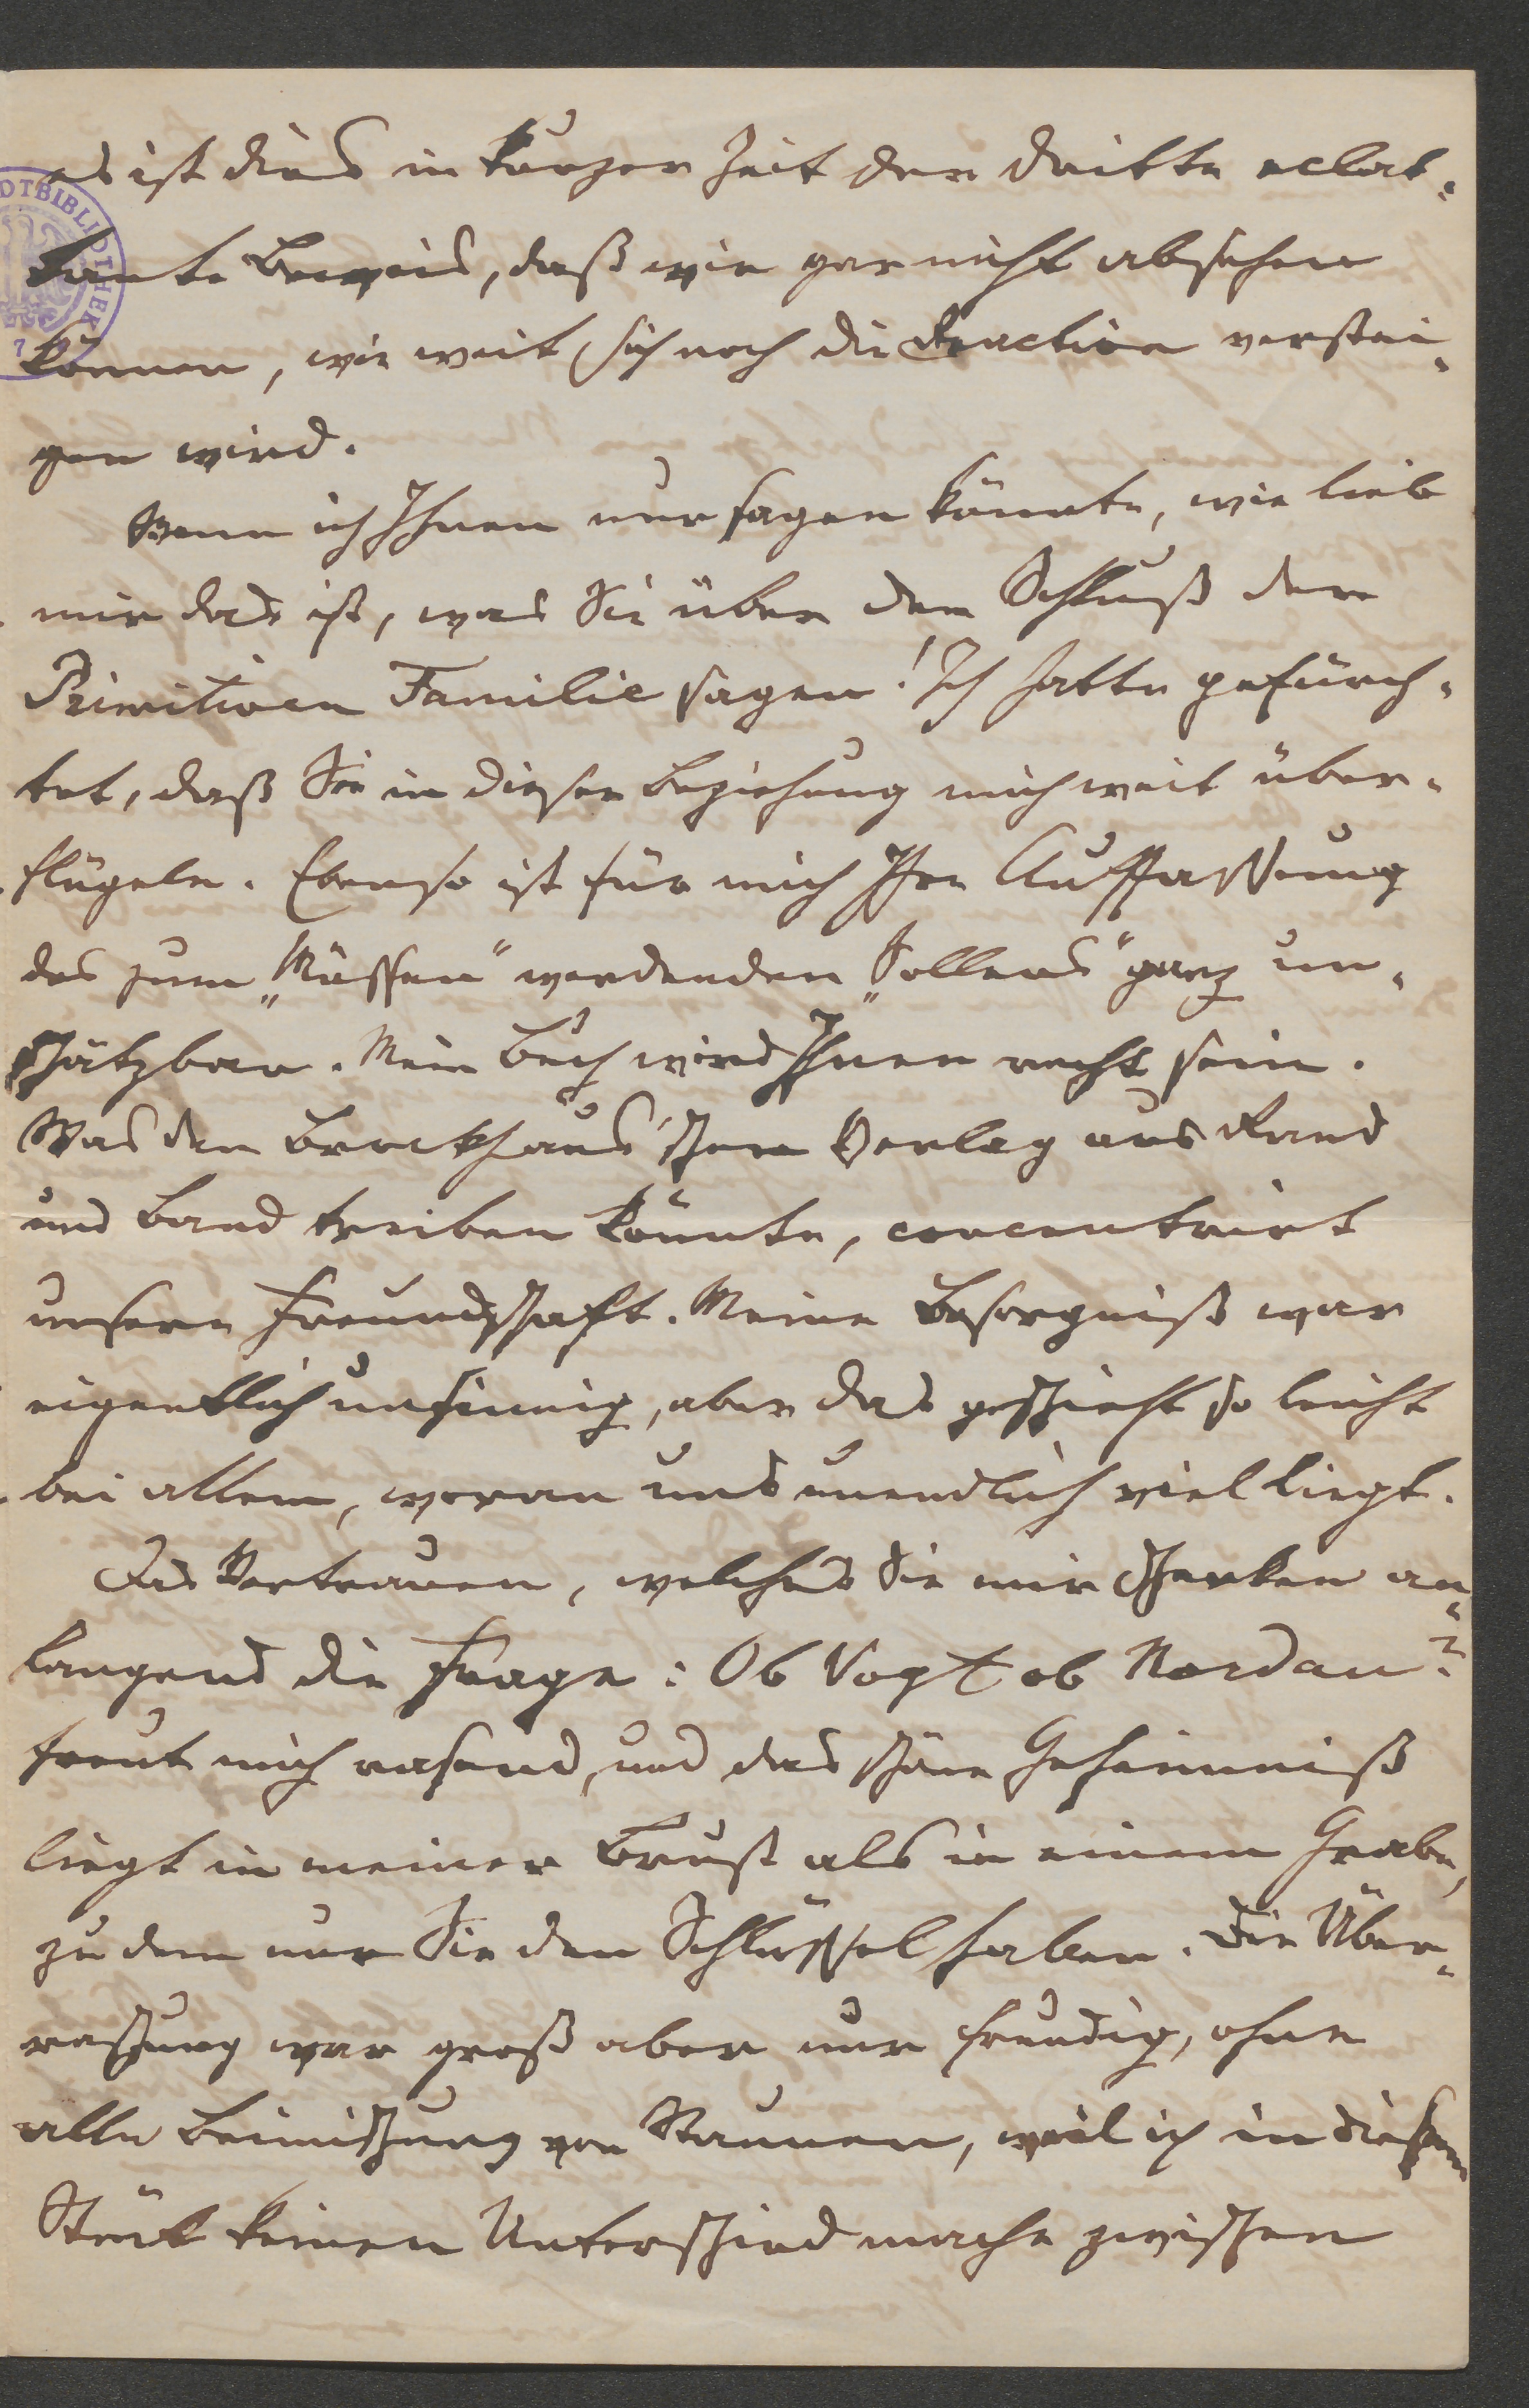 es ist dies in kurzer Zeit der dritte eclat-
tante Beweis, daß wir gar nicht absehen
können, wie weit sich noch die Reaction verstei-
gen wird.
Wenn ich Ihnen nur sagen könnte, wie lieb
mir das ist, was Sie über den Schluß der
Primitiven Familie sagen! Ich hatte gefürch-
tet, daß Sie in dieser Beziehung mich weit über-
flügeln. Ebenso ist für mich Ihre Auffassung
des zum „Müssen“ werdenden „Sollens“ ganz un-
schätzbar. Mein Buch wird Ihnen recht sein.
Was den Brockhaus'schen Verlag aus Rand
und Band treiben könnte, concentrirt
unsere Freundschaft. Meine Besorgniß war
eigentlich unsinnig, aber das geschieht so leicht
bei allem, woran uns unendlich viel liegt.
Das Vertrauen, welches Sie mir schenken an-
langend die Frage: Ob Vogt ob Nordau?
freut mich rasend, und das schöne Geheimniß
liegt in meiner Brust als in einem Grabe,
zu dem nur Sie den Schlüssel haben. Die Über-
raschung war groß aber nur freudig, ohne
alle Beimischung von Staunen, weil ich in diesem
Stück keinen Unterschied mache zwischen
DTBIBLIOTHEK
7